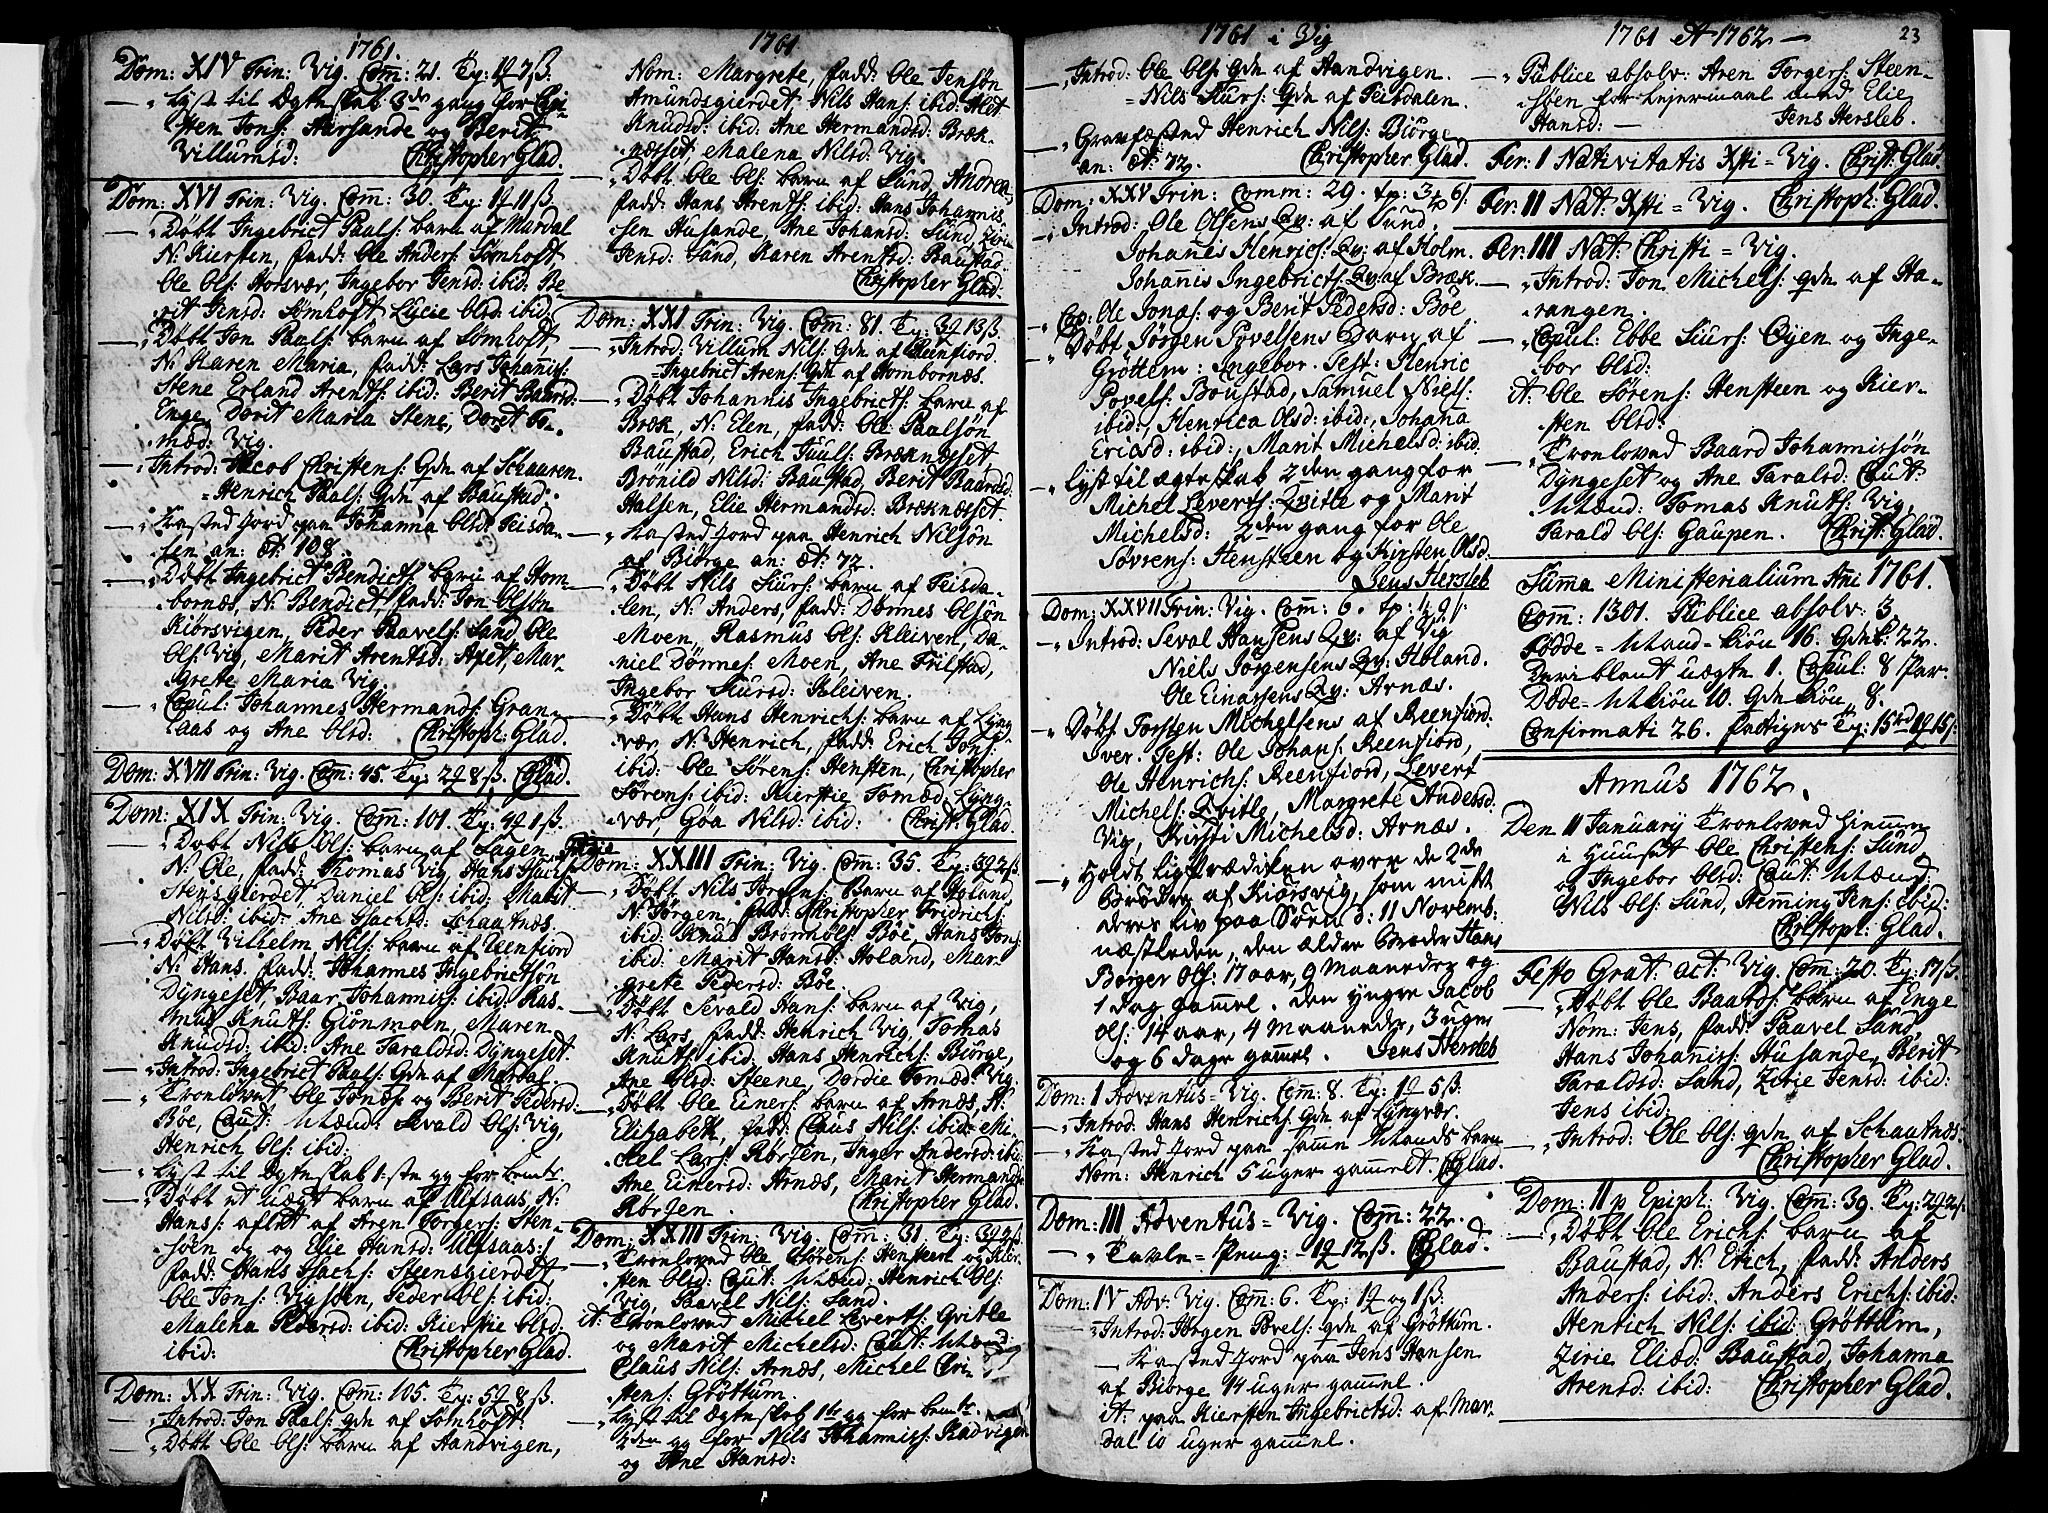 1761.
Dom: XIV Trin: Vig. Com: 21. Tz: 1 7 ß.
Lyst til Ægteskab 3de gang for
sten Jons: Hursande og Berit
Villumsd: Christopher Glad.
Dom: XVI Trin: Vig. Com: 30. Tz: 11 ß.
Døbt Ingebrict Paals: barn af Mardal
N: Kiersten, fadd: Ole Anders: Sømhoft
Ole Ols: Horsvær, Ingebor Jensd: ibid: Be-
rit Jensd: Sømhoft Lucie Olsd: ibid:
Døbt Jon Paals: barn af Sømhoft
N: Karen Maria, fadd: Lars Johannis:
Stene Erland Arents: ibid: Berit Baard:
Enge, Dorit Maria Stene, Doret To-
mæd: Vig.
Introd: Jacob Christens: Qdn af Schaaren.
Henrich Paals: Qdn af Baustad.
Kasted Jord paa Johanna Olsd: Teisda-
len an: æt: 108.
Døbt Ingebrict Bendicts: barn af Hom-
bornæs, N: Bendict, fadd: Jon Olsøn
Kiørsvigen, Peder Paavels: Sand, Ole
Ols: Vig, Marit Arentsd: Axet, Mar-
grete Maria Vig.
Copul: Johannes Hermands: Gran-
laas og Ane Olsd: Christoph: Glad.
Dom: XVII Trin: Vig. Com: 45. Tz: 2 8 ß. Glad.
Dom: XIX Trin: Vig. Com: 101. Tz: 4 1 ß.
Døbt Nils Ols: barn af Hagen,
N: Ole, fadd: Thomas Vig, Hans Isachs:
Stensgierdet, Daniel Ols: ibid: Marit
Nilsd: ibid: Ane Isachsd: Schaatnæs.
Døbt Vilhelm Nils: barn af Reenfiord
N: Hans. fadd: Johannes Ingebrictsøn
Dyngeset, Baar Johannis: ibid: Ras-
mus Knuts: Giønmoen, Maren
Knudsd: ibid: Ane Taraldsd: Dyngeset.
Introd: Ingebrict Paals: Qdn af Mardal.
Tronlovet Ole Jonæs: og Berit Pedersd:
Bøe, Caut: Mænd: Sevald Ols: Vig,
Henrich Ols: ibid:
Lyst til Ægteskab 1-ste gg for bemte.
Døbt et uægte barn af Ulfsaas, N:
Hans: aflet af Aren Torgers: Sten-
søen og Elie Hansd: Ulfsaas:
fadd: Hans Isachs: Steensgierdet,
Ole Jons: Vigsøen, Peder Ols: ibid:
Malena Pedersd: ibid: Kierstie Olsd.
ibid: Christopher Glad.
Dom: XX Trin: Vig. Com: 105. Tz: 5 8 ß.
Introd: Jon Paals: qdn af Sømhoft.
Døbt Ole Ols: barn af Aandvigen,
1761
Nom: Margrete, fadd: Ole Jensøn
Amundsgierdet, Nils Hans: ibid: Alet
Knudsd: ibid: Ane Hermandsd: Bræk-
næsset, Malena Nilsd: Vig.
Døbt Ole Ols: barn af Sund, Andrea,
fadd: Hans Arents: ibid: Hans Johannis
sen Husande, Ane Johansd: Sund, Zirie
Jensd: Sand, Karen Arentsd: Baustad.
Christopher Glad.
Dom: XXI Trin: Vig. Com: 81. Tz: 3 13 ß
Introd: Villum Nils: Qdn af Reenfiord.
Ingebrict Arens: Qdn af Hombornæs.
Døbt Johannis Ingebricts: barn af
Bræk, N: Elen, fadd: Ole Paalsøn
Baustad, Erich Juuls: Bræknæset,
Brønild Nilsd: Baustad, Berit Baardsd:
Halsen, Elie Hermandsd: Bræknæsset.
Kasted Jord paa Henrich Nilsøn
af Biørge an: æt: 72.
Døbt Nils Siurs: barn af Teisda-
len, N: Anders, fadd: Dørmes Olsøn
Moen, Rasmus Ols: Kleiven, Da-
niel Dørmes: Moen, Ane Trilstad,
Ingebor Siursd: Kleiven.
Døbt Hans Henrichs: barn af Lyng-
vær, N: Henrich, fadd: Erich Jons:
ibid: Ole Sørens: Hensten, Christopher
Sørens: ibid: Kierstie Tomæd: Lyng-
vær, Goa Nilsd: ibid: Christ: Glad.
Dom: XXIII Trin: Vig. Com: 35. Tz: 3 2 ß.
Døbt Nils Jørgens: Barn af Holand,
N: Jørgen, fadd: Christopher Fridrichs:
ibid: Knus Brønhols: Bøe, Hans Jons:
ibid: Marit Hansd: Holand, Mar-
grete Pedersd: Bøe.
Døbt Sevald Hans: barn af Vig,
N: Lars, fadd: Henrich Vig, Tomas
Knuts: ibid: Hans Henrichs: Biørge,
Ane Olsd: Steene, Dordie Tomæd: Vig.
Døbt Ole Einers: barn af Arnæs, N:
Elizabeth, fadd: Claus Nils: ibid: Mi-
chel Lars: Rørgen, Inger Andersd: ibid:
Ane Einersd: Arnæs, Marit Hermandsd:
Rørgen. Christopher Glad.
Dom: XXIII Trin: Vig. Com: 31. Tz: 3 2 ß.
Tronloved Ole Sørens: Hensteen og Kier-
sten Olsd: Caut: Mænd: Henrich Ols:
Vig, Paavel Nils: Sand.
it: Tronloved Michel Leverts: Qvitle
og Marit Michelsd: Caut: Mænd:
Claus Nils: Arnæs, Michel Chri-
stens: Grøttum.
Lyst til Ægteskab 1te gg for bemte.
2den gg for Nils Johannis: Radvigen
og Ane Hansd:
1761 i Vig
Introd: Ole Ols: Qdn af Aandvigen.
Nils Siurs: Qdn af Teisdalen.
Gravfæsted Henrich Nils: Biørge
an: æt: 72. Christopher Glad.
Dom: XXV Trin: Comm: 29. tp: 3 6 ß
Introd: Ole Olsens Qv: af Sund,
Johanes Henrics: Qv: af Holm.
Johanis Ingebricts: Qv: af Bræk.
Cop: Ole Jonæs: og Berit Pedersd: Bøe.
Døbt Jørgen Povelsens Barn af
Grøttem: Ingebor. Test: Henric
Povels: Boustad, Samuel Niels:
ibid:, Henrica Olsd: ibid:, Johana
Ericsd: ibid:, Marit Michelsd: ibid
Lyst til ægteskab 2den gang for
Michel Leverts: Qvitle og Marit
Michelsd: 2den gang for Ole
Søvrens: Hensteen og Kirsten Olsd:
Jens Hersleb
Dom: XXVII Trin: Vig. Com: 6. tp: 1 9 ß.
Introd: Seval Hansens Qv: af Vig
Niels Jørgensens Qv: Holand.
Ole Einarsens Qv: Arnæs.
Døbt Torsten Michelsens af Reenfiord:
Iver. Test: Ole Johans: Reenfiord,
Ole Henrichs: Reenfiord, Levert
Michels: Qvitle, Margrete Andersd:
Vig, Kirsti Michelsd: Arnæs.
Holdt Ligprædiken over de 2de
Brødre af Kiørsvig, som mistet
deres liv paa Søen d: 11 Novemb:
næstleden, den ældre Broder Hans
Børger Ols: 17 aar, 9 Maaneder og
1 Dag gammel. Den yngre Jacob
Ols: 14 aar, 4 Maaneder, 3 uger
og 6 dage gammel. Jens Hersleb
Dom: I Adventus = Vig. Com: 8. Tz: 1 5 ß.
Introd: Hans Henrichs: Qdn af Lyngvær.
Kasted Jord paa samme Mands barn
Nom: Henrich 5 uger gammelt. Glad.
Dom: III Adventus = Vig. Com: 22.
Tavle = Peng: 1 12 ß. Glad.
Dom: IV Adv: Vig. Com: 6. Tz: 1 og 1 ß.
Introd: Jørgen Povels: qdn af Grøttum.
Kasted Jord paa Jens Hansen
af Biørge 14 uger gammel.
it: paa Kiersten Ingebrictsd: af Mar-
dal 10 uger gammel.
1761 et 1762
23
Publice absolv: Aren Torgers: Steen-
søen for Lejermaal med Elie
Hansd: Jens Hersleb.
Fer: I Nativitatis Xsti = Vig. Christ: Glad
Fer: II Nat: Xsti = Vig. Christoph: Glad.
Fer: III Nat: Christi = Vig.
Introd: Jon Michels: qdn af Ha-
rangen.
Copul: Ebbe Siurs: Øyen og Inge-
bor Olsd:
it: Ole Sørens: Hensteen og Kier-
sten Olsd:
Tronloved Baard Johannissøn
Dyngeset og Ane Taralsd: Caut:
Mænd: Tomas Knuts: Vig,
Tarald Ols: Gaupen. Christ: Glad.
Suma Ministerialium Ani 1761.
Com: 1301. Publice absolv: 3
Fødde = Mand-kiøn 16. Qdnk: 22.
Deriblant uægte 1. Copul: 8 Par.
Døde = Mkiøn 10. Qdn kiøn 8.
Confirmati 26. fattigns Tz: 15rd 1 15 ß.
Annus 1762.
Den 11 January Tronloved hiemme
i Huuset Ole Christens: Sund
og Ingebor Olsd: Caut: Mænd:
Nils Ols: Sund, Heming Jens: ibid:
Christoph: Glad.
Festo Grat: act: Vig. Com: 20. Tz: 17 ß.
Døbt Ole Baards: barn af Enge
Nom: Jens, fadd: Paavel Sund,
Hans Johannis: Husande, Berit
Taraldsd: Sand, Zirie Jensd: ibid:
Jens ibid:
Introd: Ole Ols: qdn af Schaatnæs.
Christopher Glad.
Dom: II p Epiph: Vig. Com: 39. Tz: 2 2 ß.
Døbt Ole Erichs: barn af
Baustad, N: Erich, fadd: Anders
Anders: ibid: Anders Erichs: ibid:
Henrich Nils: ibid: Grøttum,
Zirie Eliæd: Baustad, Johanna
Arensd: ibid: Christopher Glad.